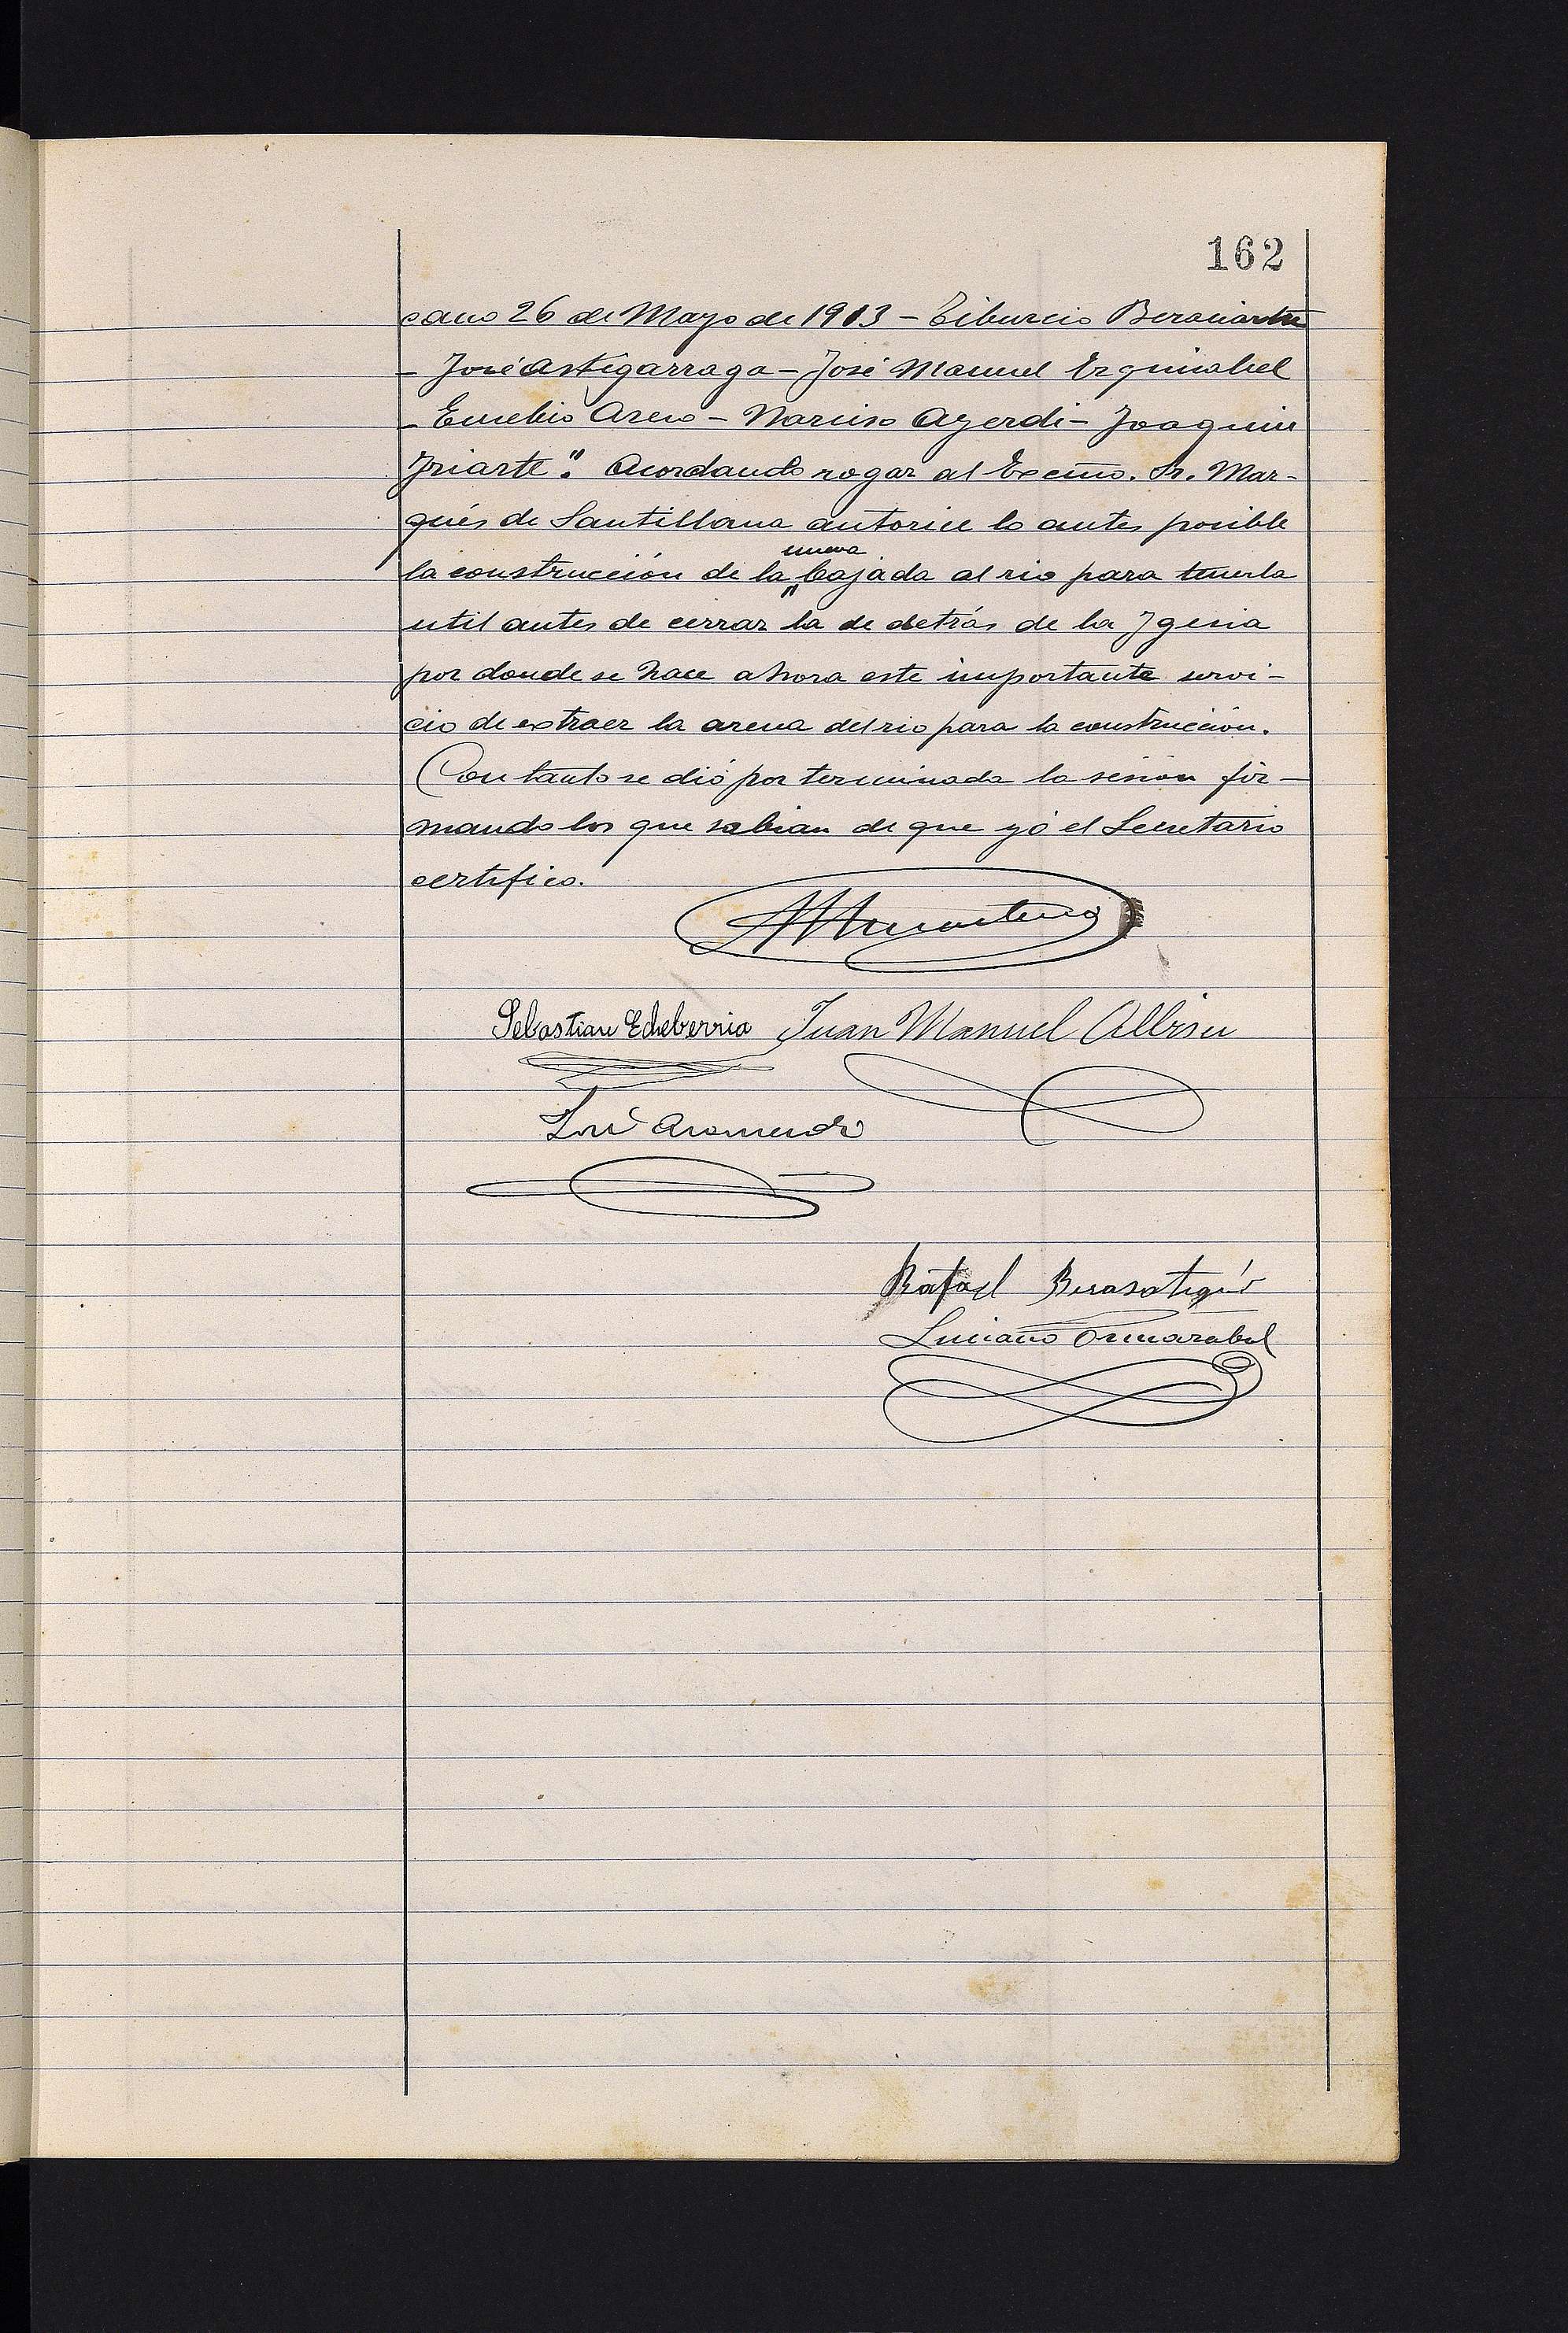 162
cano 26 de Mayo de 1913 - Tiburcio Beraciartu
- José Astigarraga - José Manuel Ezquiabel
- Eusebio Areno - Narciso Azerdi - Joaquin
Iriarte". Acordando rogar al Excmo. Sr. Mar-
qués de Santillana autorice lo antes posible
nueva
la construcción de la bajada al rio para tenerla
util antes de cerrar la de detrás de la Iglesia
por donde se hace ahora este importante servi-
cio de extraer la arena del rio para la construcción.
Con tanto se dió por terminada la sesión fir-
mando los que sabian de que yó el Secretario
certifico.
Sebastian Echeberria Juan Manuel Albisu
José Aramendi
Rafael Berasategui
Luciano Ormazabal